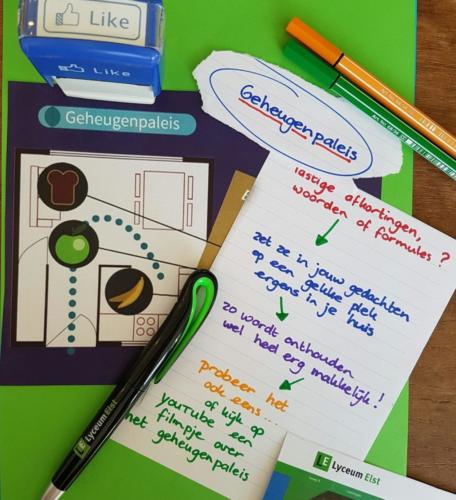 Like
Like
Geheugenpaleis
Geheugenpaleis
lastige afkortingen,
woorden of formules?
zet ze in jouw gedachten
op een gekke plek
ergens in je huis
zo wordt onthouden
wel heel erg makkelijk!
probeer het
ook eens...
of kijk op
youtube een
filmpje over
het geheugenpaleis
LE Lyceum Elst
LE Lyceum Elst